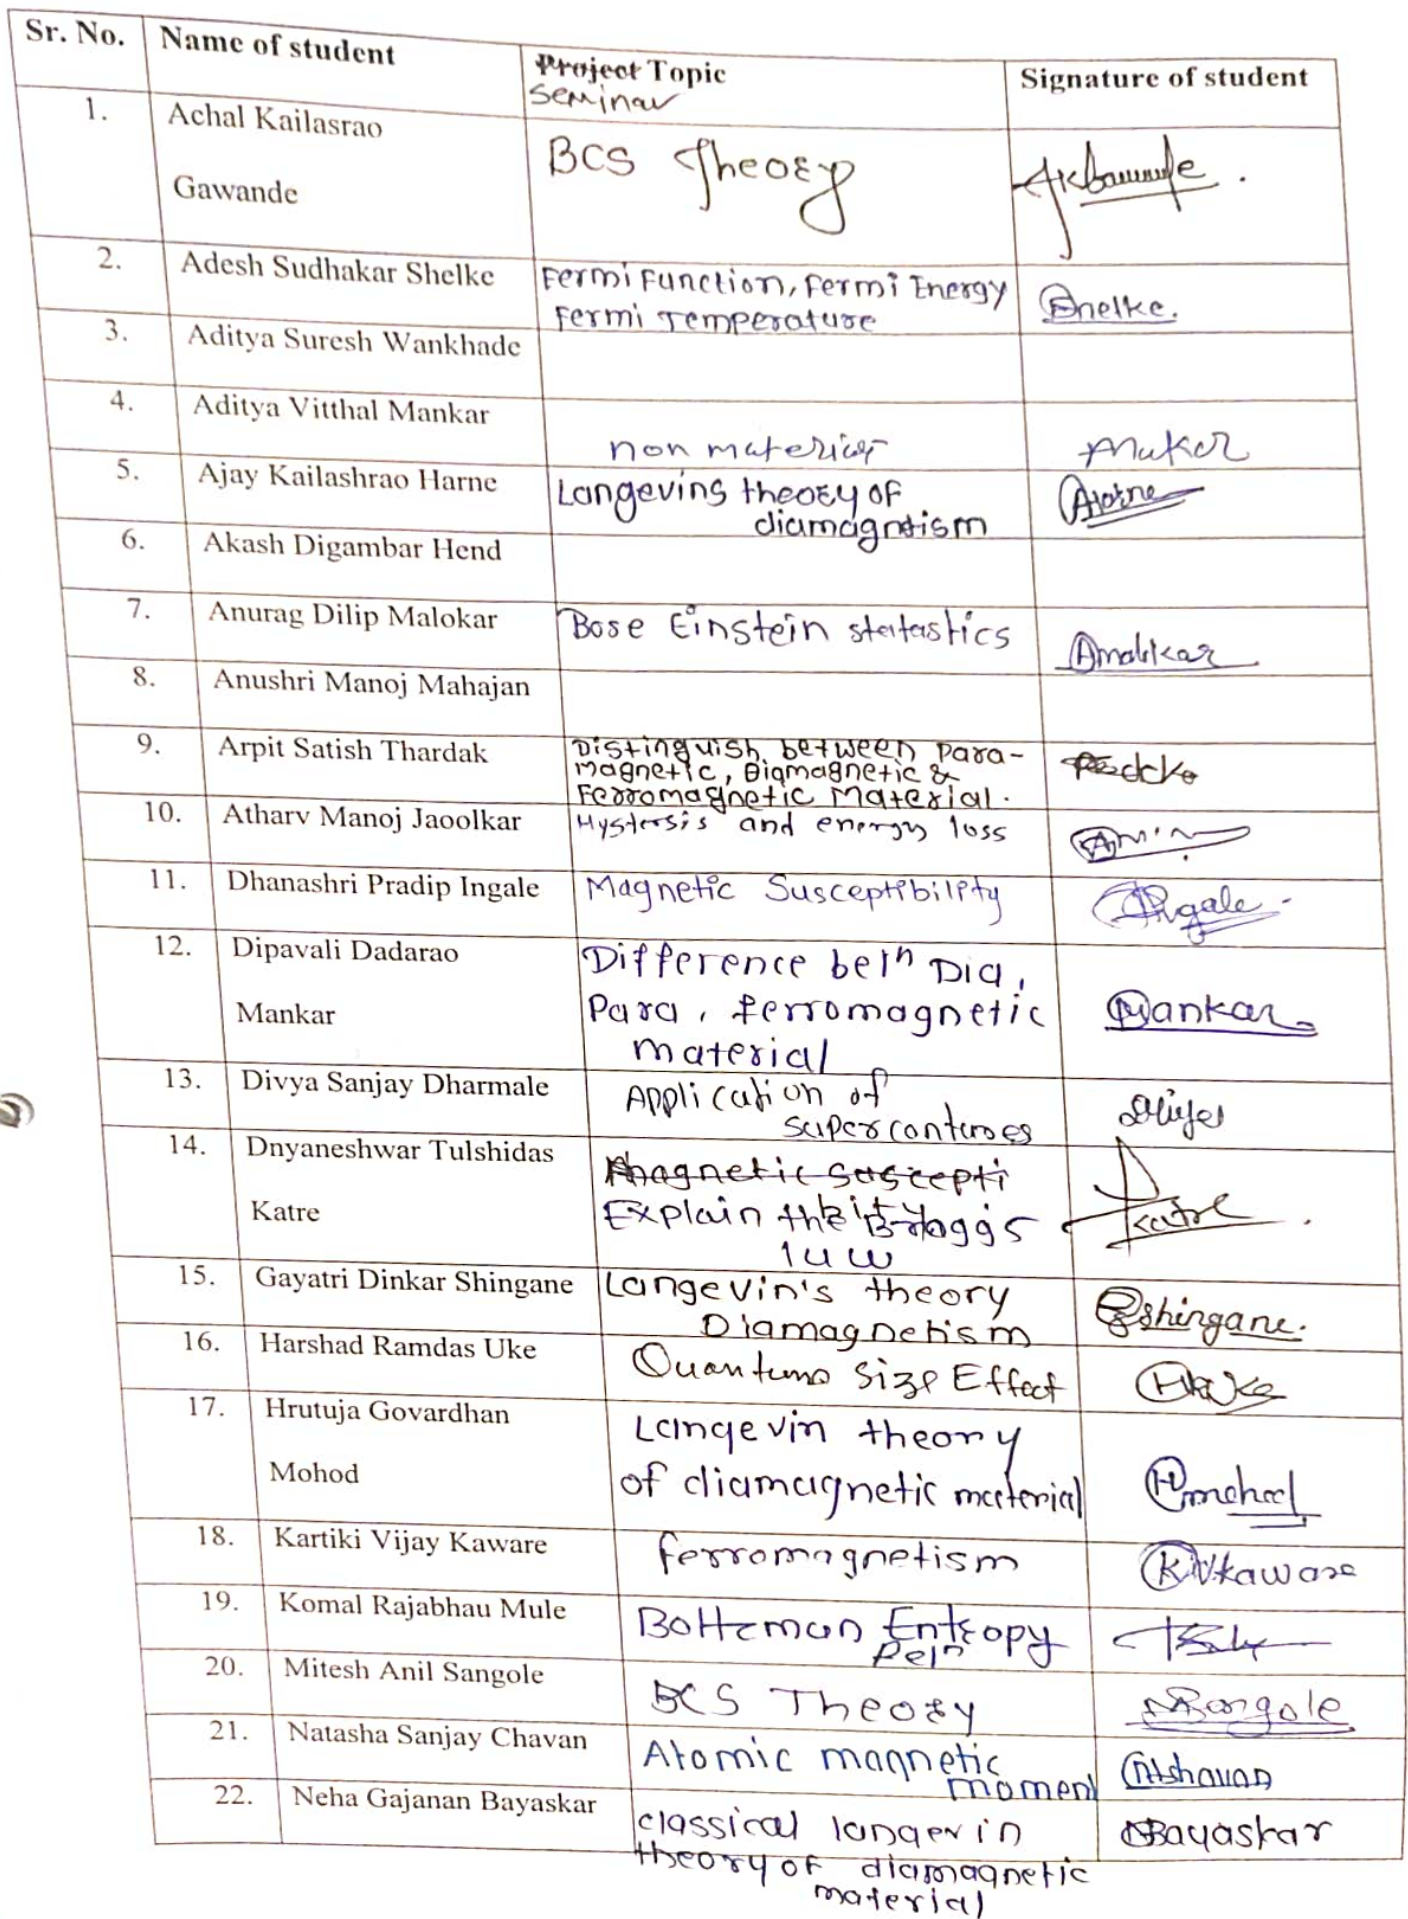 Sr. No. Name of student Project Topic Signature of student
Seminar
1. Achal Kailasrao
Gawande
BCS Theory
2. Adesh Sudhakar Shelke
Fermi Function, Fermi Energy
Fermi Temperature
Shelke.
3. Aditya Suresh Wankhade
4. Aditya Vitthal Mankar
non material
5. Ajay Kailashrao Harne
Langevins theory of
diamagntism
AHarne
6. Akash Digambar Hend
7. Anurag Dilip Malokar
Bose Einstein statastics
Amalokar
8. Anushri Manoj Mahajan
9. Arpit Satish Thardak
Distinguish between para-
magnetic, Diamagnetic &
Ferromagnetic Material.
10. Atharv Manoj Jaoolkar
Hystersis and energy loss
11. Dhanashri Pradip Ingale
Magnetic Susceptibility
Ingale
12. Dipavali Dadarao
Mankar
Difference betn Dia,
Para, ferromagnetic
material
Mankar
13. Divya Sanjay Dharmale
Application of
14. Dnyaneshwar Tulshidas
Katre
Magnetic suscepti
Explain the Braggs
law
Katre
15. Gayatri Dinkar Shingane
Langevin's theory
Diamagnetism
Shingane.
16. Harshad Ramdas Uke
Quantum Size Effect
HRUke
17. Hrutuja Govardhan
Mohod
Langevin theory
of diamagnetic material
Hmohod
18. Kartiki Vijay Kaware
ferromagnetism
KVkaware
19. Komal Rajabhau Mule
Boltzman Entropy
Reln
20. Mitesh Anil Sangole
BCS Theory
Sangole
21. Natasha Sanjay Chavan
Atomic magnetic
moment
22. Neha Gajanan Bayaskar
classical langevin
theory of diamagnetic
material
NBayaskar